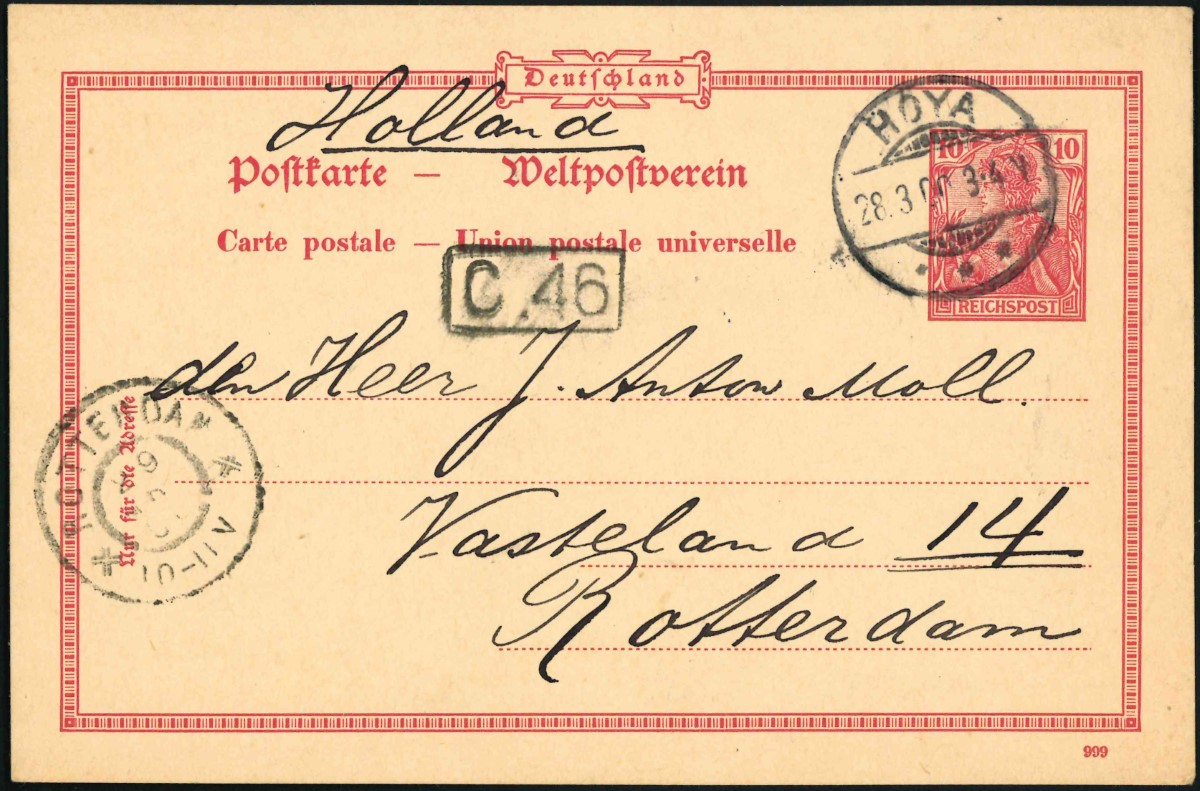 Deutschland
Holland
Postkarte — Weltpostverein
Carte postale — Union postale universelle
HOYA
28.3.00 3-4 N
10 10
REICHSPOST
C.46
den Heer J. Anton Moll.
Vasteland 14
Rotterdam
Nur für die Adresse
ROTTERDAM
10-11V
999